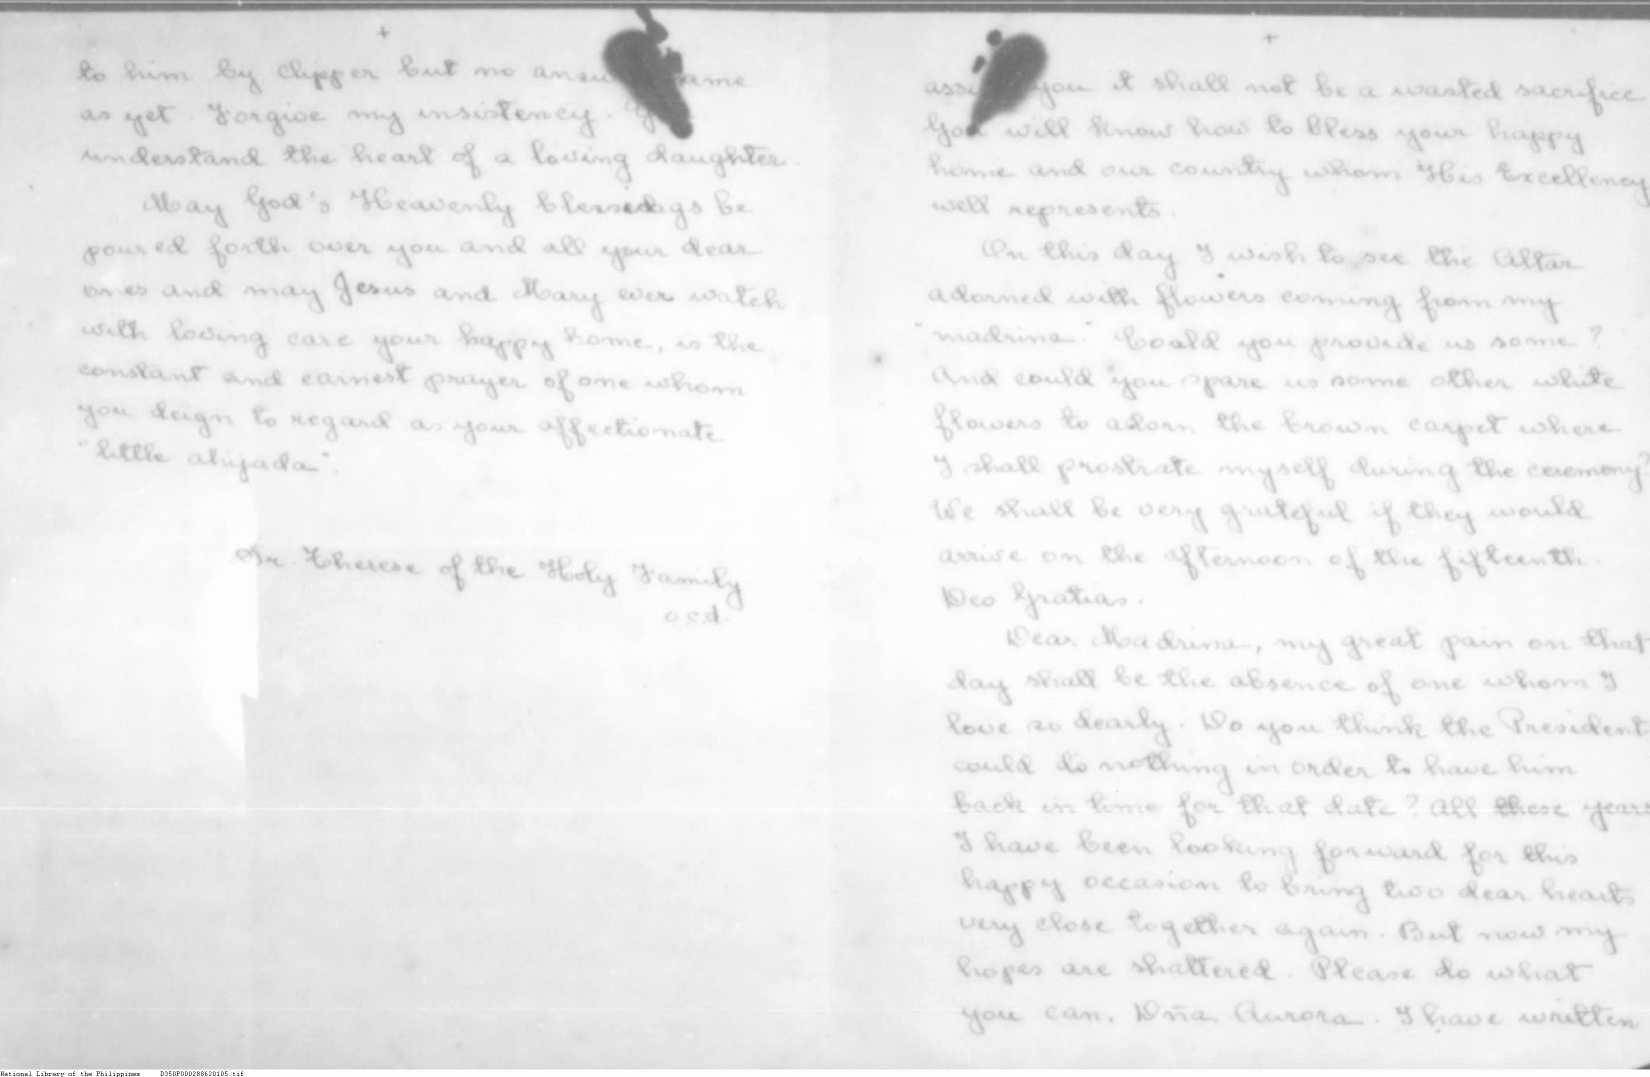 +
to him by clipper but no came
as yet. Forgive my insistency.
understand the heart of a loving daughter.
May God's Heavenly blessings be
poured forth over you and all your dear
ones and may Jesus and Mary ever watch
with loving care your happy home, is the
constant and earnest prayer of one whom
you deign to regard as your affectionate
"little ahijada".
Sr. Therese of the Holy Family
o.c.d.
+
you it shall not be a wasted sacrifice
God will know how to bless your happy
home and our country whom His Excellency
well represents.
On this day I wish to see the Altar
adorned with flowers coming from my
"madrina." Could you provide us some?
And could you spare us some other white
flowers to adorn the brown carpet where
I shall prostrate myself during the ceremony?
We shall be very grateful if they would
arrive on the afternoon of the fifteenth.
Deo Gratias.
Dear Madrina, my great pain on that
day shall be the absence of one whom I
love so dearly. Do you think the President
could do nothing in order to have him
back in time for that date? All these years
I have been looking forward for this
happy occasion to bring two dear hearts
very close together again. But now my
hopes are shattered. Please do what
you can, Dña. Aurora. I have written
National Library of the Philippines D350P000288620105.tif